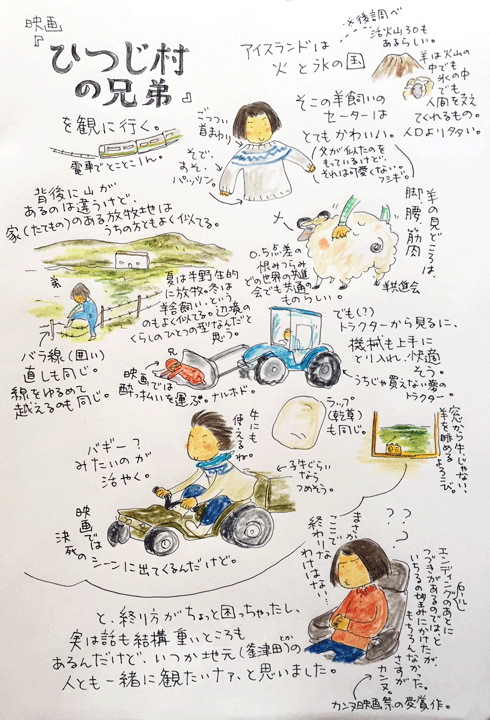 映画
『ひつじ村
の兄弟』
を観に行く。
電車でとことこ1h。
※後調べ
活火山30も
あるらしい。
アイスランドは
火と氷の国
羊は火山の
中でも
氷の中
でも
人間を支え
てくれるもの。
人口より多い。
そこの羊飼いの
セーターは
とてもかわいい。
(父が似たのを
もっているけど、
それは可愛くない。
フシギ。)
ごっつい
首まわり
そで、
すそ、
パッツン。
背後に山が
あるのは違うけど、
家(たてもの)のある放牧地は
うちの方ともよく似てる。
弟
羊の見どころは、
脚腰筋肉
羊共進会
0.5点差の
恨みつらみ
どの世界の共進
会でも共通の
ものらしい。
夏は半野生的
に放牧。冬は
羊舎飼い、という
のもよく似てる。辺境の
くらしのひとつの型なんだと
思う。
バラ線(囲い)
直しも同じ。
線をゆるめて
越えるのも同じ。
兄
映画では
酔っ払いを運ぶ。ナルホド。
でも(?)
トラクターから見るに、
機械も上手に
とり入れ、快適
そう。
うちじゃ買えない夢の
トラクター。
ラップ
(乾草)
も同じ。
窓から牛じゃない
羊を眺める
よろこび。
牛にも
使えるね。
バギー?
みたいのが
活やく。
←子牛ぐらい
なら
つめそう。
映画では
決死のシーンに出てくるんだけど。
まさか
ここで
終わりな
わけはない!
? ? ?
エンディングロールのあとに
つづきがあるのでは、と
いちるの望みにかけたが、
もちろんなかった。
さすが
カンヌ。
カンヌ映画祭の受賞作。
と、終り方がちょっと困っちゃったし、
実は話も結構重いところも
あるんだけど、いつか地元(蓬津田)とかの
人とも一緒に観たいナァ、と思いました。